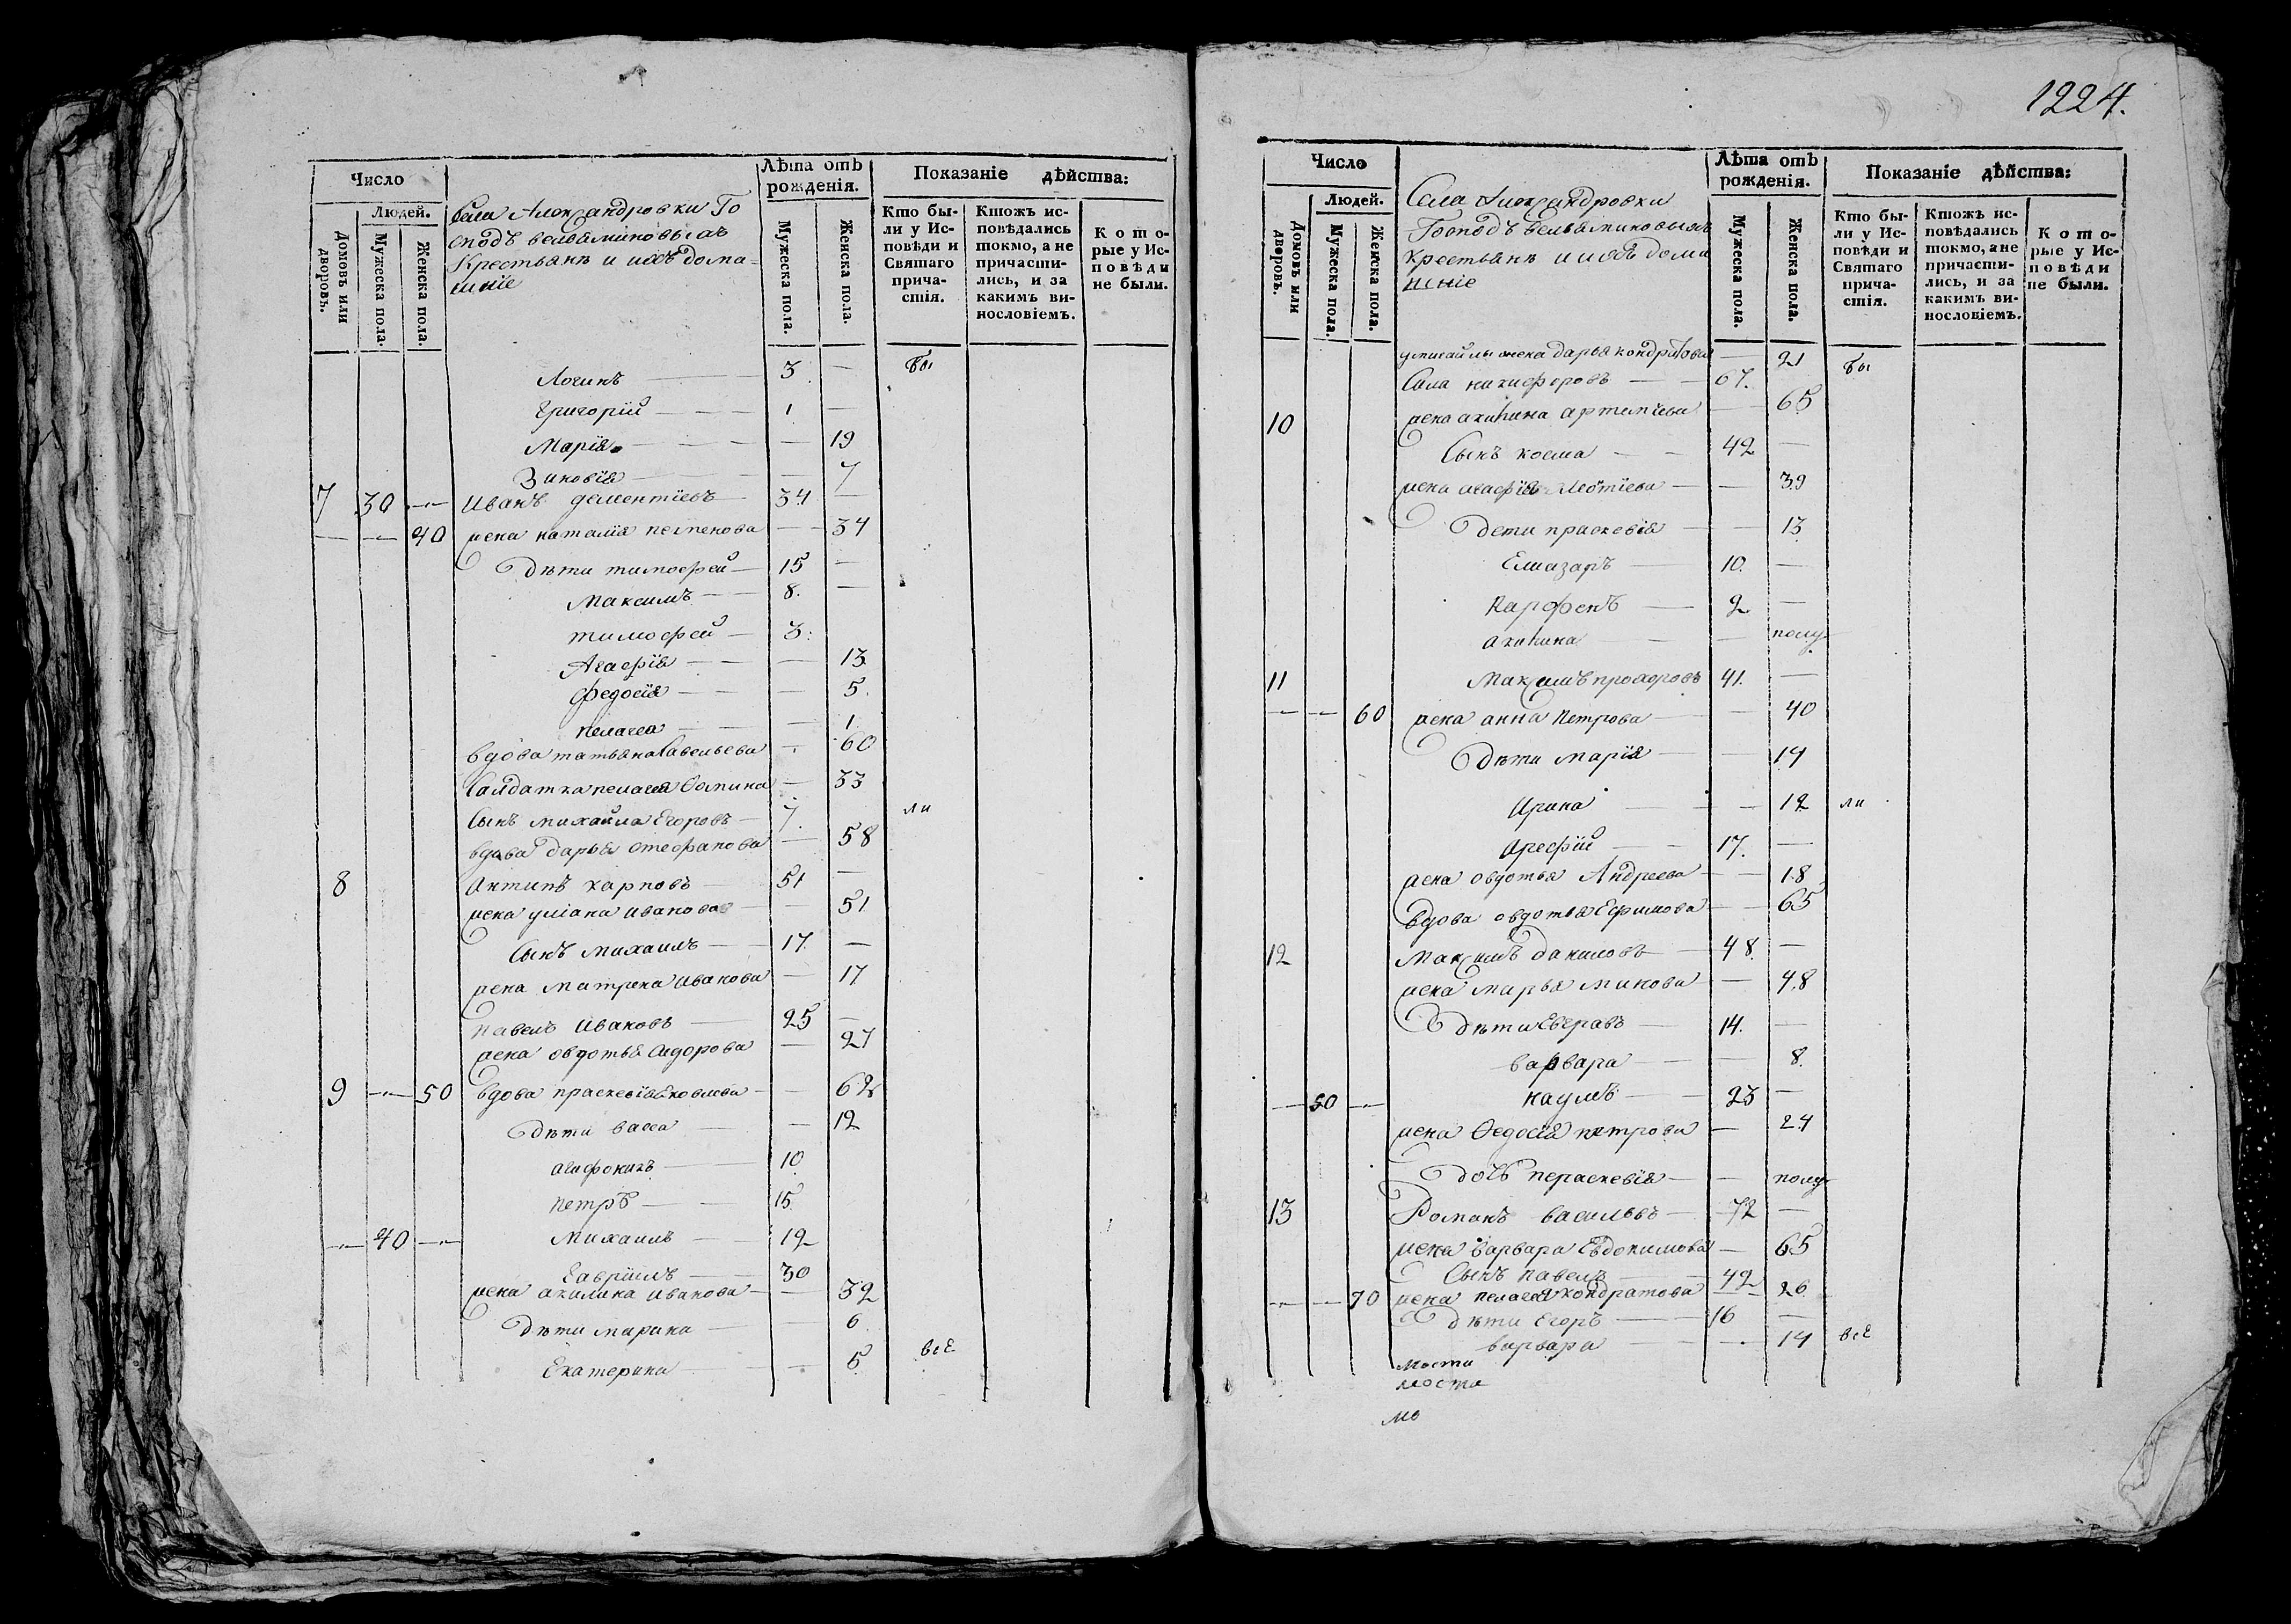 1224.
Число
Людей.
Домовъ или дворовъ.
Мужеска пола.
Женска пола.
Села Александровки Го
сподъ вельяминовыхъ
Крестьянъ и ихъ дома-
шніе
Лѣта отъ рожденія.
Мужеска пола.
Женска пола.
Показаніе дѣйства:
Кто бы-
ли у Ис-
повѣди и
Святаго
прича-
стія.
Ктожъ ис-
повѣдались
токмо, а не
причасти-
лись, и за
какимъ ви-
нословіемъ.
Кото-
рые у Ис-
повѣди
не были.
Логинъ — 3. — бы
Григорій — 1 —
Марія — — 19
Зиновія — — 7
7 30 — Иванъ дементіевъ 34 —
— — 40 жена наталія — 34
Дѣти тимофей 15 —
Максимъ 8. —
тимофей 3.
Агафія — 13
федосія — 5.
пелагея — 1.
вдова татьяна Савельева — 60
Салдатка пелагея Фомина — 33
Сынъ михайла Егоровъ 7. ли
вдава дарья стефанова — 58
8 Антипъ карповъ 51 —
жена уліана иванова — 51
Сынъ михаилъ 17. —
жена матрена иванова — 17
павелъ Ивановъ 25 —
жена овдотья Сидорова — 27
9 — 50 вдова праскевія Яковлева — 62
Дѣти васса — 12
агафонихъ 10.
петръ 15.
— 40 — Михаилъ 19
Гавріилъ 30
жена акилина иванова — 32
Дѣти марина — 6
Екатерина — 5. всѣ
Число
Людей.
Домовъ или дворовъ.
Мужеска пола.
Женска пола.
Села Александровки
Господъ вельяминовыхъ
крестьянъ и ихъ дома
шніе
Лѣта отъ рожденія.
Мужеска пола.
Женска пола.
Показаніе дѣйства:
Кто бы-
ли у Ис-
повѣди и
Святаго
прича-
стія.
Ктожъ ис-
повѣдались
токмо, а не
причасти-
лись, и за
какимъ ви-
нословіемъ.
Кото-
рые у Ис-
повѣди
не были.
жена дарья кондратова — 21 бы
Сила никифоровъ 67.
10 жена акилина артемиева — 65
Сынъ косма 42 —
жена агафія — 39
Дети праскевія — 13
Елиазаръ 10. —
Парфенъ 2 —
акилина — полу
11 Максимъ прохоровъ 41. —
— — 60 жена анна Петрова — 40
Дѣти марія — 14
Ирина — 12 ли
Арефій 17. —
жена овдотья Андреева — 18
вдова овдотья Ефимова — 65
12 Максимъ даниловъ 48. —
жена марья — 48
Дѣти 14. —
варвара — 8.
— 50 — наумъ 23 —
жена Федосія петрова — 24
дочь пераскевія — полу
13 Романъ васильевъ 72 —
жена варвара Евдокимова — 65
Сынъ павелъ 42
— — 70 жена пелагея кондратова — 26
дѣти Егоръ 16 —
варвара — 14 всѣ
мости
мости
мо